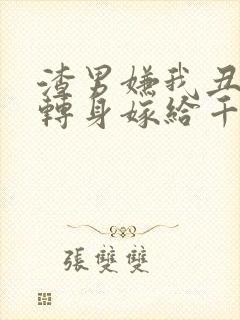 渣男嫌我丑
轉身嫁給千
張雙雙